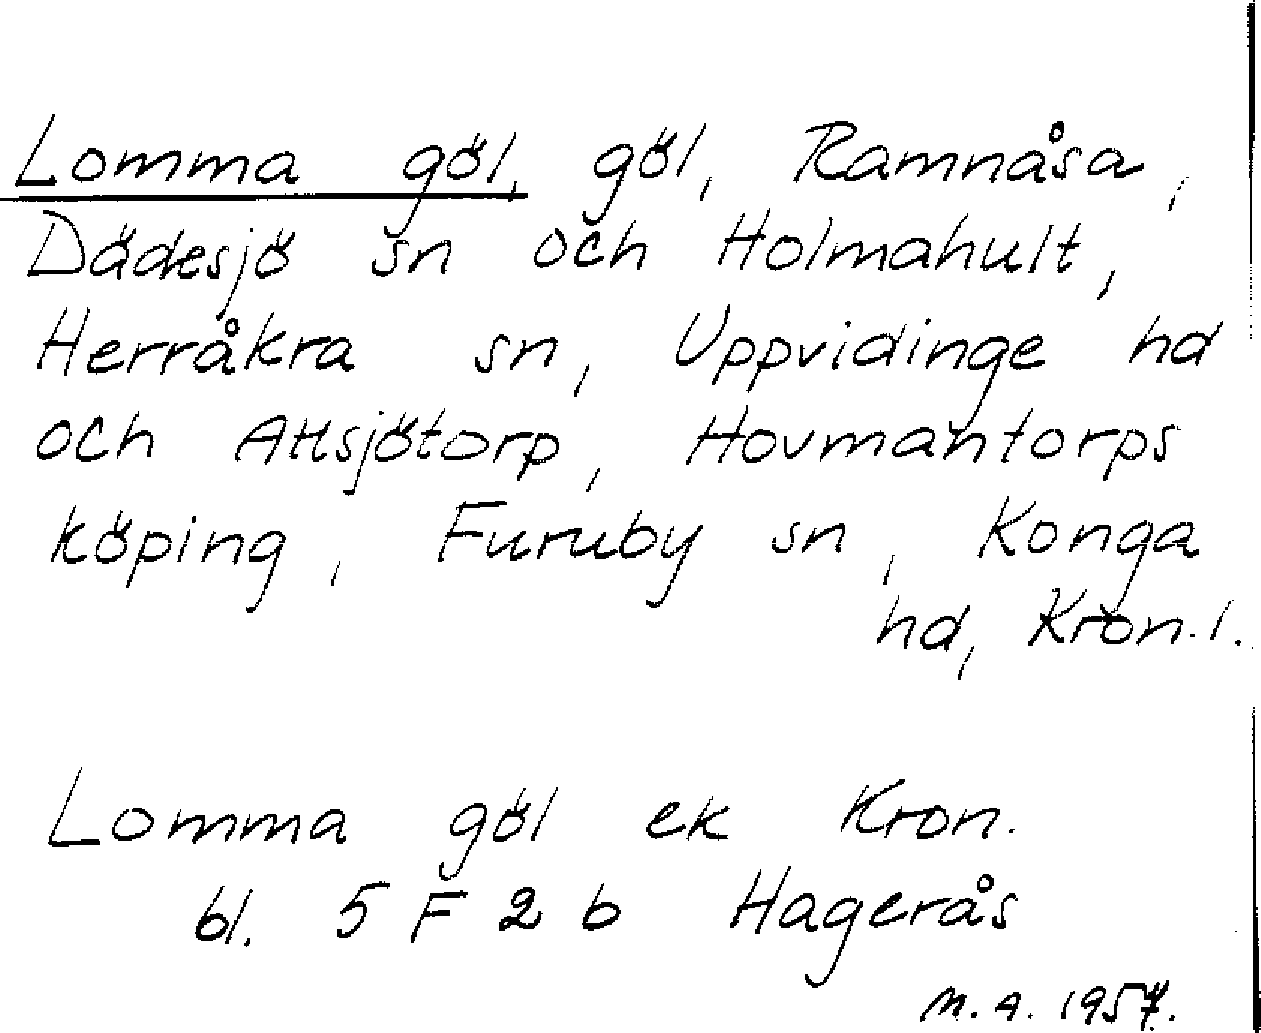 Lomma göl, göl, Ramnåsa,
Dädesjö sn och Holmahult,
Herråkra sn, Uppvidinge hd
och Attsjötorp, Hovmantorps
köping, Furuby sn, Konga
hd, Kron.l.
Lomma göl ek Kron.
bl. 5 F 2 b Hagerås
M.A. 1957.